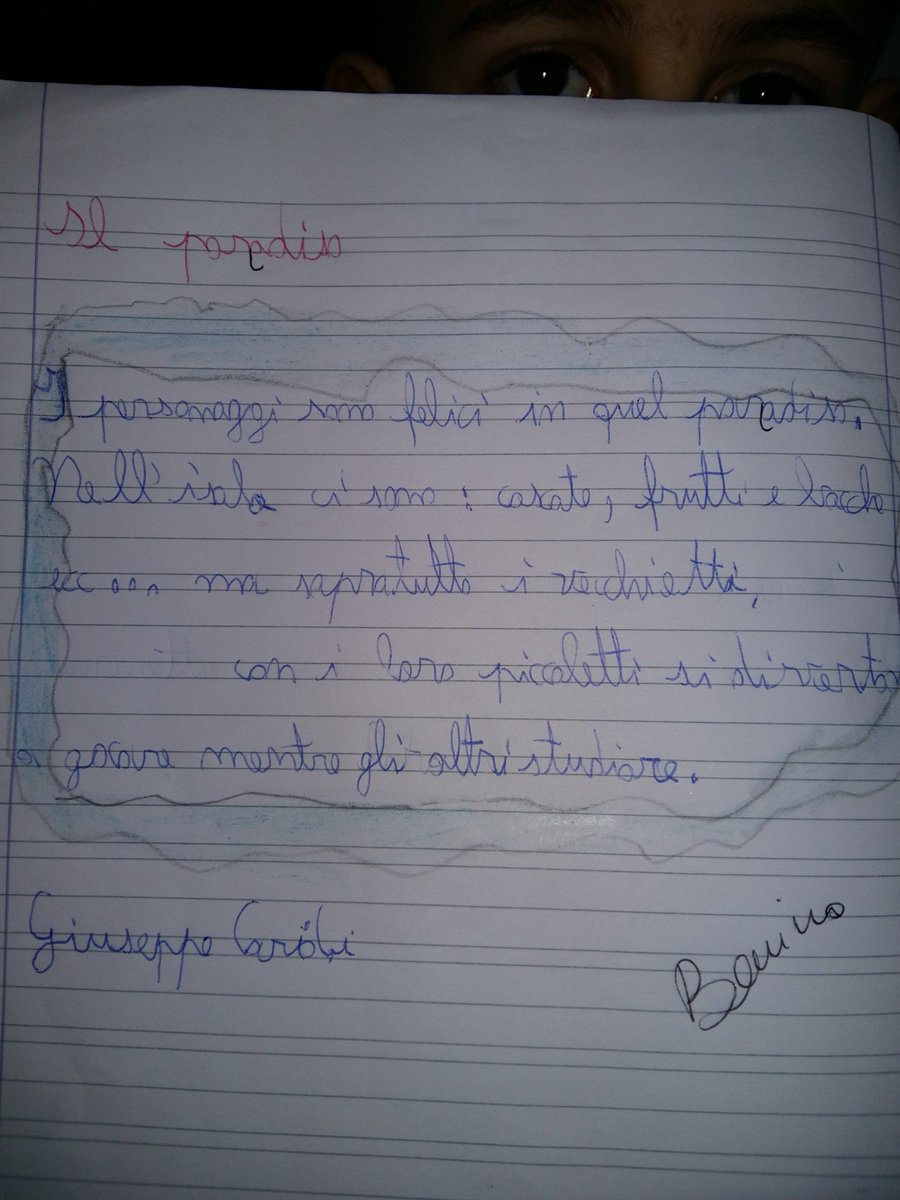 Il paradiso
I personaggi sono felici in quel paradiso.
Nell'isola ci sono: casate, frutti e
ecc... ma sopratutto i vecchietti,
con i loro picoletti si diverton
a gocare mentre gli altri studiare.
Giuseppe
Benino